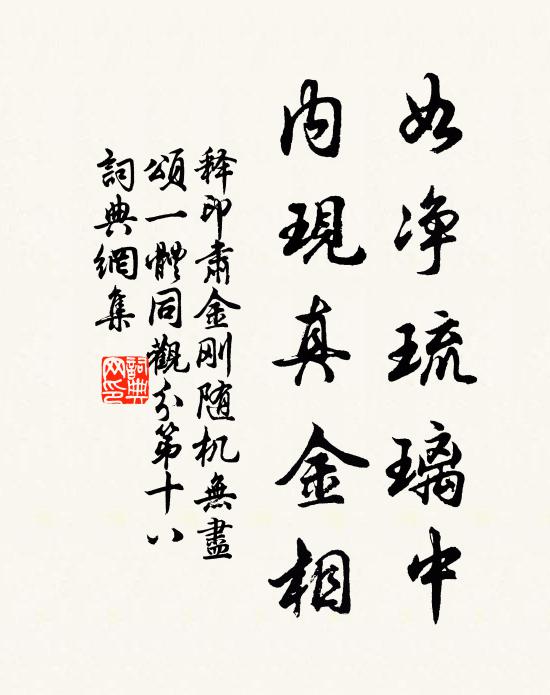 如净琉璃中
内現真金相
释印肃金刚随机無盡
頌一體同觀分第十八
詞典網集
詞典網印